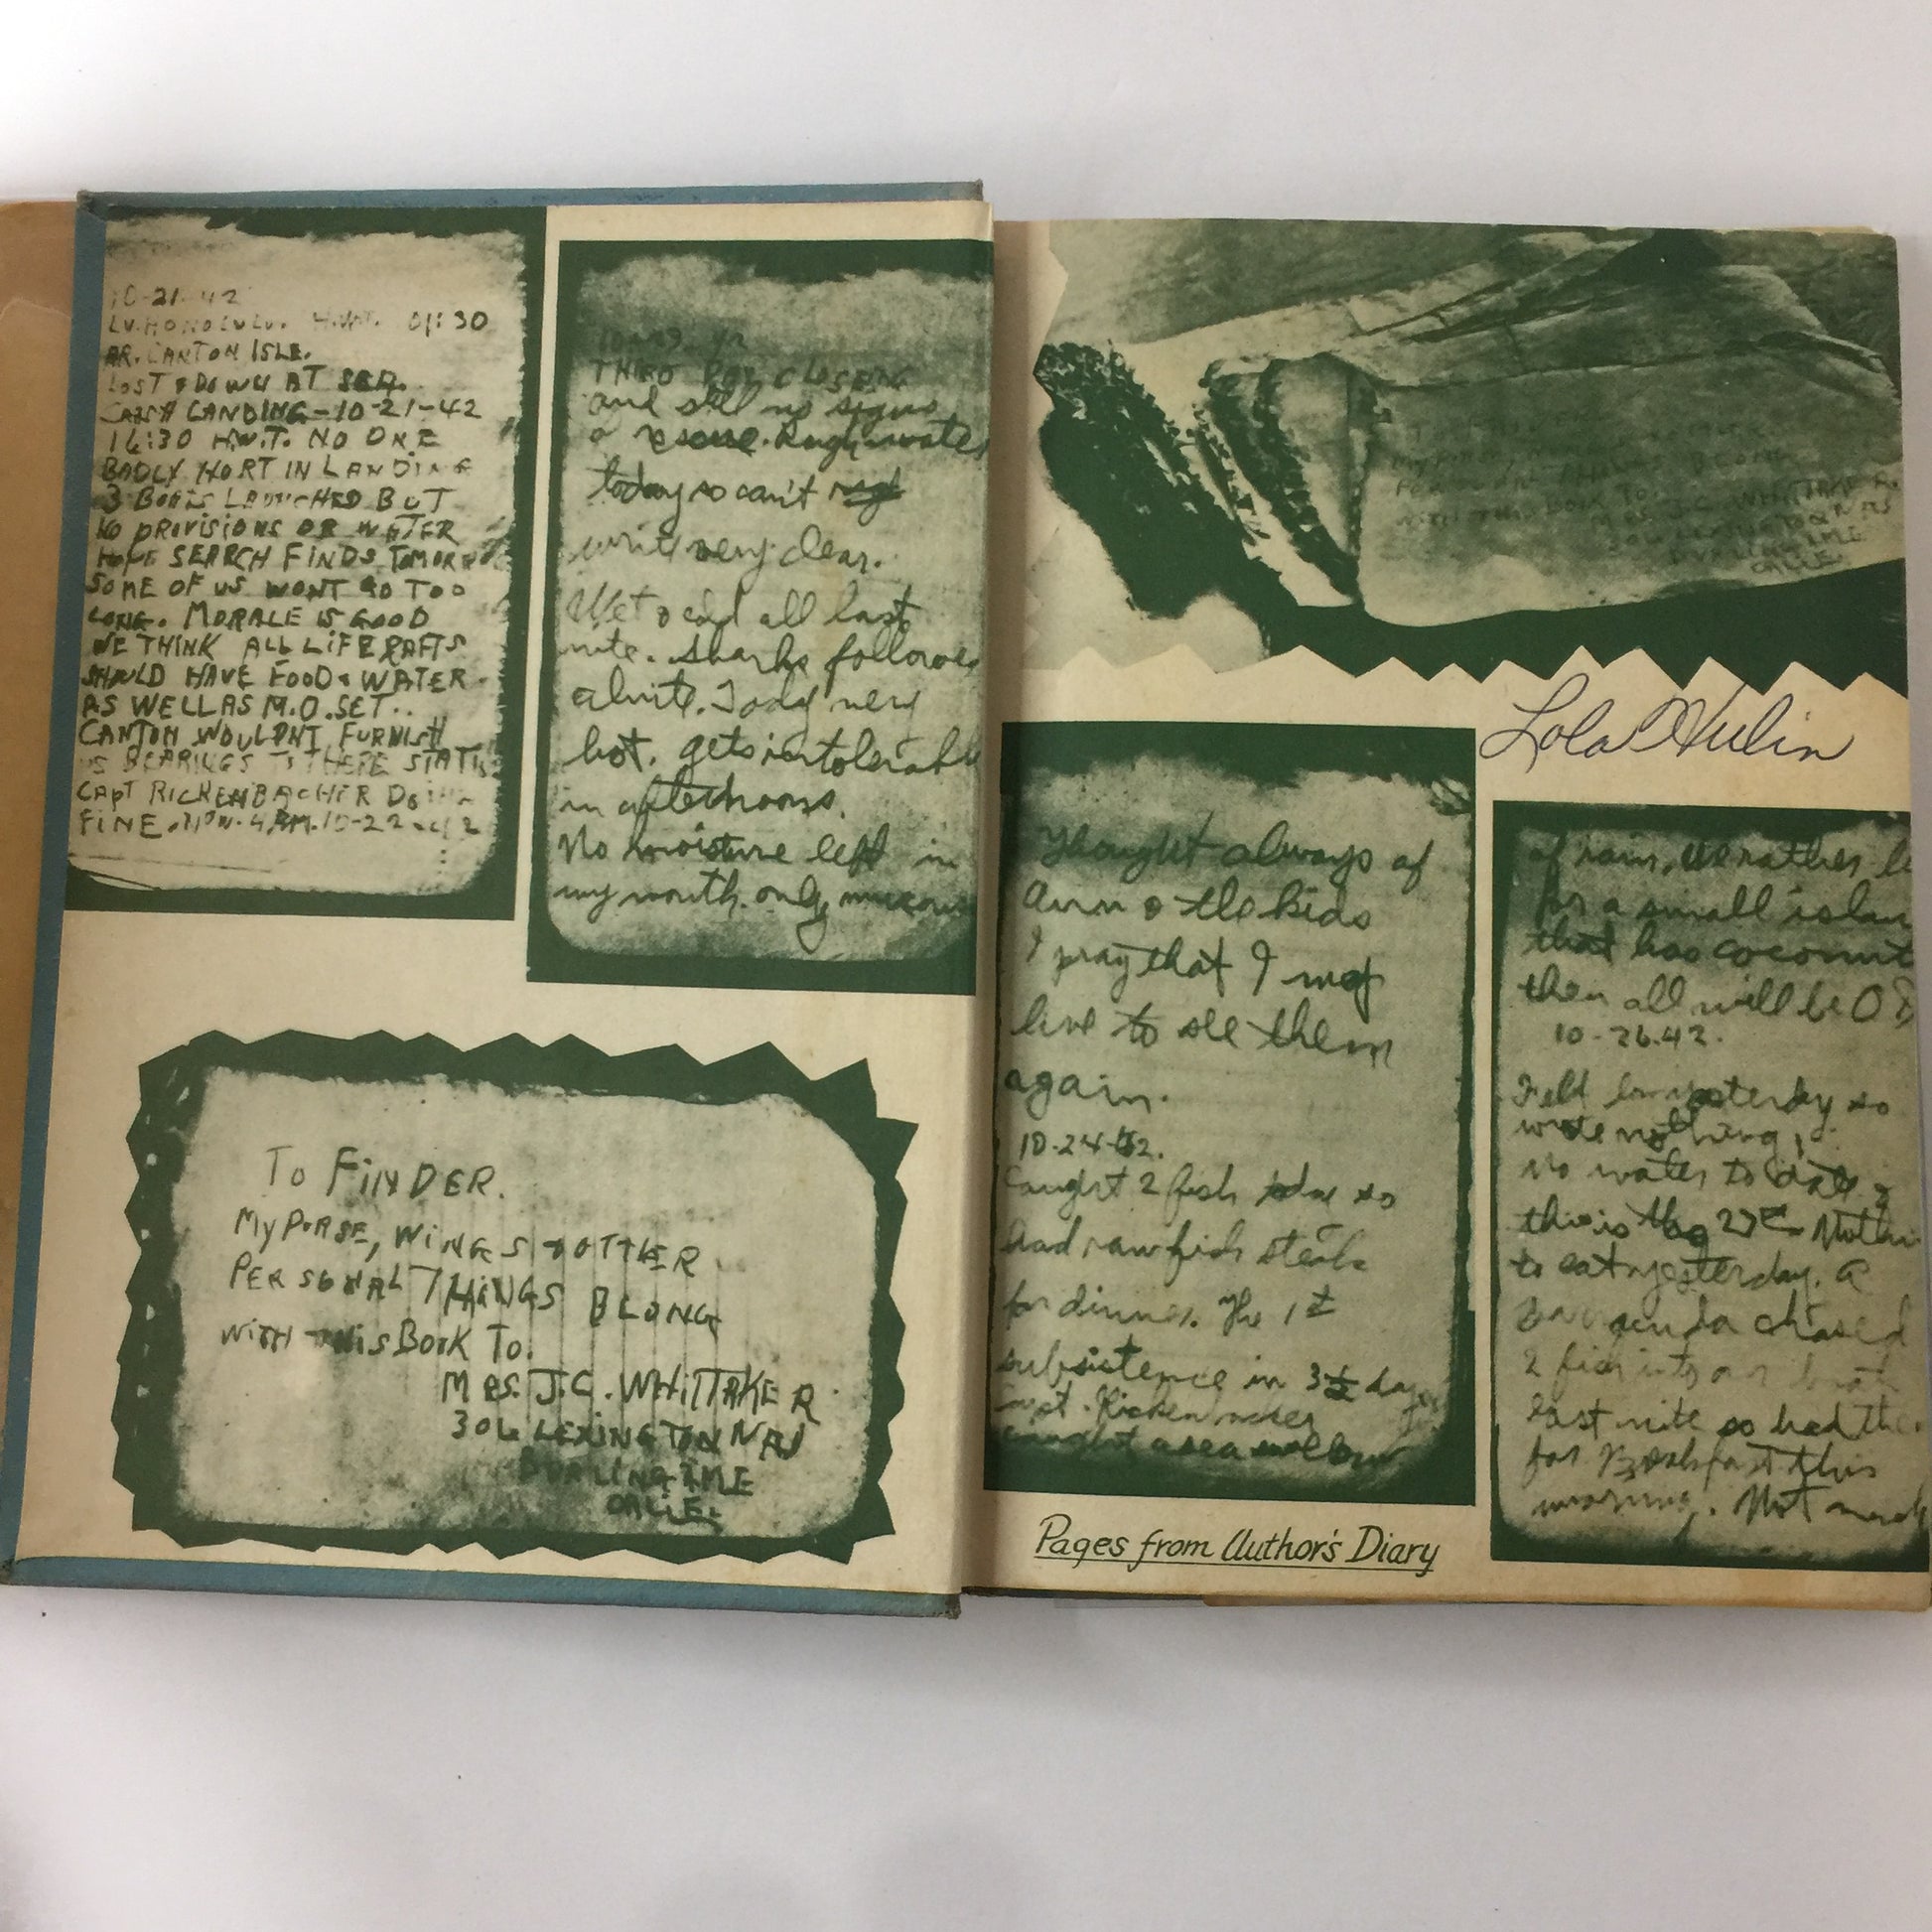 10-21-42
LV. HONOLULU. H.W.T. 01:30
AR. CANTON ISLE.
LOST & DOWN AT SEA.
CRASH LANDING-10-21-42
16:30 H.W.T. NO ONE
BADLY HORT IN LANDING
3 BOATS LAUNCHED BUT
NO PROVISIONS OR WATER
HOPE SEARCH FINDS TOMORR
SOME OF US WONT GO TOO
LONG. MORALE IS GOOD
WE THINK ALL LIFE RAFTS
SHOULD HAVE FOOD & WATER
AS WELL AS M.O. SET..
CANTON WOULDNT FURNISH
US BEARINGS TO THERE STATI
CAPT RICKENBACHER DOING
FINE. 4 AM. 10-22-42
THIRD DAY CLOSEING
and still no signs
a rescue. Rough water
today so can't
write very clear.
Wet & cold all last
nite. Sharks followed
alnite. Today very
hot. gets intolerable
in afternoons.
No moisture left in
my mouth. only mucous
TO FINDER.
MY PURSE, WINGS & OTHER
PERSONAL THINGS BLONG
WITH THIS BOOK TO.
MRS. J.C. WHITTAKER
306 LEXINGTON
BURLINGAME
CALIF.
TO FINDER
WITH THIS BOOK TO
MRS. J.C. WHITTAKER
BURLINGAME
CALIF.
Lola Hulin
Thought always of
Ann & the kids
I pray that I may
live to see them
again.
10-24-42.
Caught 2 fish so
had rawfish steak
for dinner. The 1st
subsistence in 3½ days
Capt. Rickenbacker
caught a sea swallow
Pages from Author's Diary
of rain,
for a small islan
that has coconut
then all will be O
10-26-42.
Feld low yesterday so
wrote nothing,
No water to date &
this is the 27th
to eat yesterday. A
Barracuda chased
2 fish into our boat
last nite so had the
for Breakfast this
morning. Not much